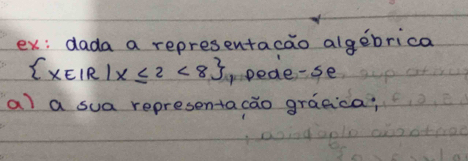 ex: dada a representação algébrica
{XEIR/X ≤ 2 < 8}, pede-se
a) a sua representação gráfica;